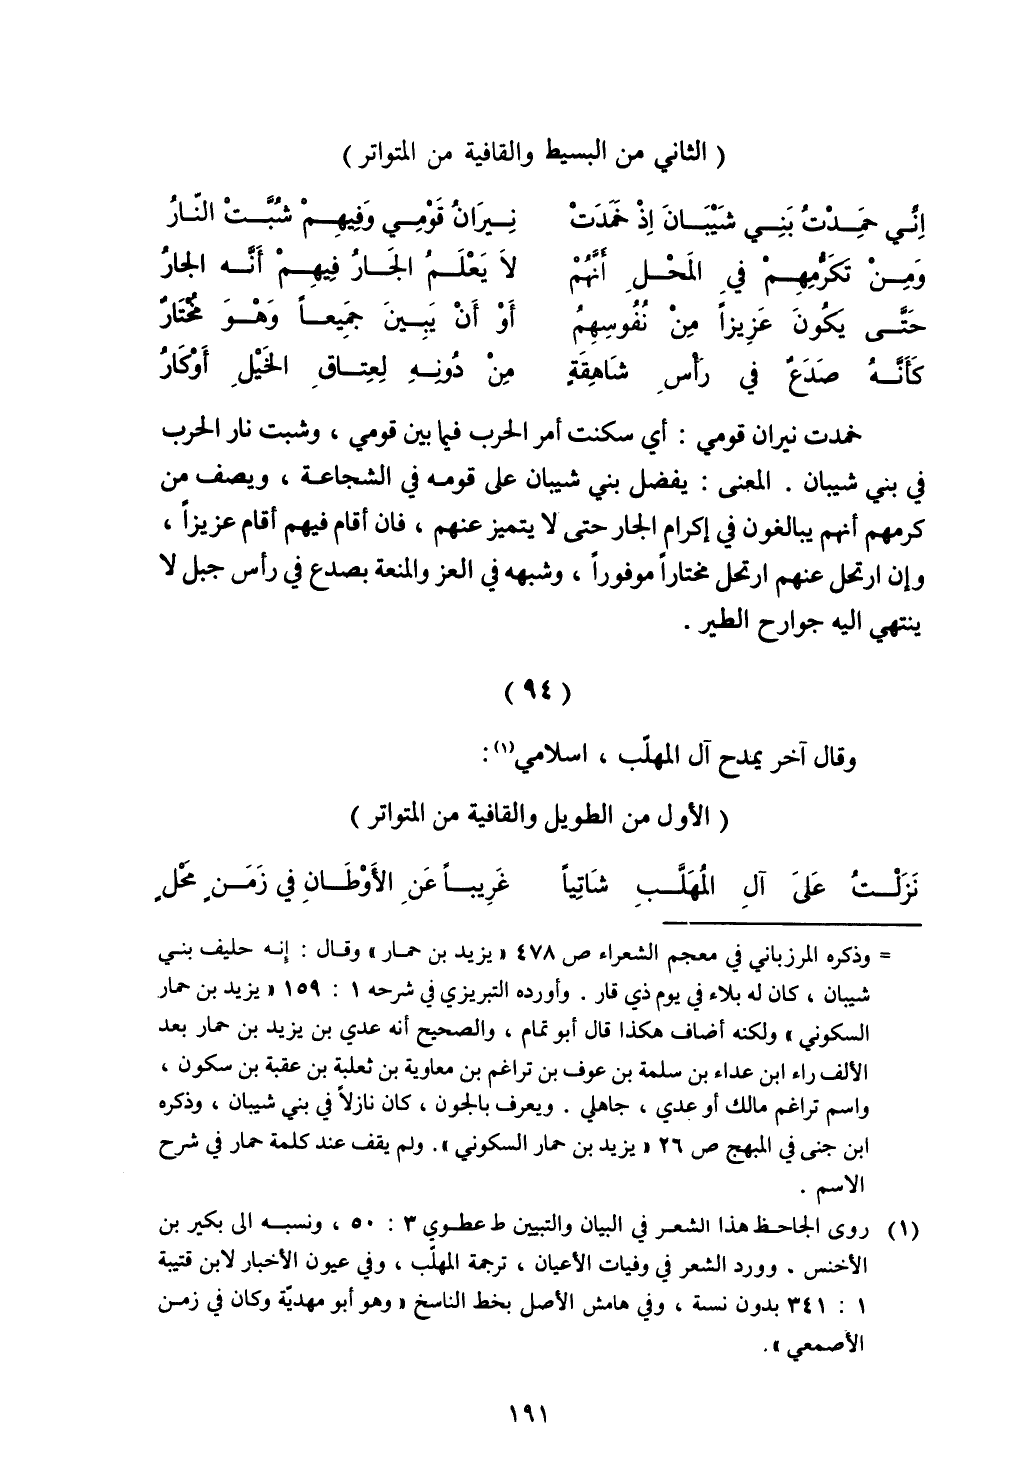 ( الثاني من البسيط والقافية من المتواتر )
اِنِّي حَمِدْتُ بَنِي شَيْبَانَ إِذْ خَمَدَتْ نِيرَانُ قَوْمِي وَفِيهِمْ شُبَّتْ النَّارُ
وَمِنْ تَكَرُّمِهِمْ فِي المَحْلِ أَنَّهُمْ لاَ يَعْلَمُ الجَارُ فِيهِمْ أَنَّه الجارُ
حَتَّى يَكُونَ عَزِيزاً مِنْ نُفُوسِهِمُ أَوْ أَنْ يَبِينَ جَمِيعاً وَهْوَ مُخْتَارُ
كَأَنَّهُ صَدَعٌ في رَأْسِ شَاهِقَةٍ مِنْ دُونِهِ لِعِتاقِ الخَيْلِ أَوْكَارُ
خمدت نيران قومي : أي سكنت أمر الحرب فيما بين قومي ، وشبت نار الحرب
في بني شيبان . المعنى : يفضل بني شيبان على قومه في الشجاعة ، ويصف من
كرمهم أنهم يبالغون في إكرام الجار حتى لا يتميز عنهم ، فان أقام فيهم أقام عزيزاً ،
وإن ارتحل عنهم ارتحل مختاراً موفوراً ، وشبهه في العز والمنعة بصدع في رأس جبل لا
ينتهي اليه جوارح الطير .
( ٩٤ )
وقال آخر يمدح آل المهلّب ، اسلامي(١) :
( الأول من الطويل والقافية من المتواتر )
نَزَلْتُ عَلَىَ آلِ المُهَلَّبِ شَاتِياً غَرِيباً عَنِ الأَوْطَانِ في زَمَنٍ مَحْلٍ
= وذكره المرزباني في معجم الشعراء ص ٤٧٨ « يزيد بن حمار » وقال : إنه حليف بني
شيبان ، كان له بلاء في يوم ذي قار . وأورده التبريزي في شرحه ١ : ١٥٩ « يزيد بن حمار
السكوني » ولكنه أضاف هكذا قال أبو تمام ، والصحيح أنه عدي بن يزيد بن حمار بعد
الألف راء ابن عداء بن سلمة بن عوف بن تراغم بن معاوية بن ثعلبة بن عقبة بن سكون ،
واسم تراغم مالك أو عدي ، جاهلي . ويعرف بالجون ، كان نازلاً في بني شيبان ، وذكره
ابن جنى في المبهج ص ٢٦ « يزيد بن حمار السكوني » . ولم يقف عند كلمة حمار في شرح
الاسم .
(١) روى الجاحظ هذا الشعر في البيان والتبيين ط عطوي ٣ : ٥٠ ، ونسبه الى بكير بن
الأخنس . وورد الشعر في وفيات الأعيان ، ترجمة المهلّب ، وفي عيون الأخبار لابن قتيبة
١ : ٣٤١ بدون نسة ، وفي هامش الأصل بخط الناسخ « وهو أبو مهديّة وكان في زمن
الأصمعي » .
١٩١